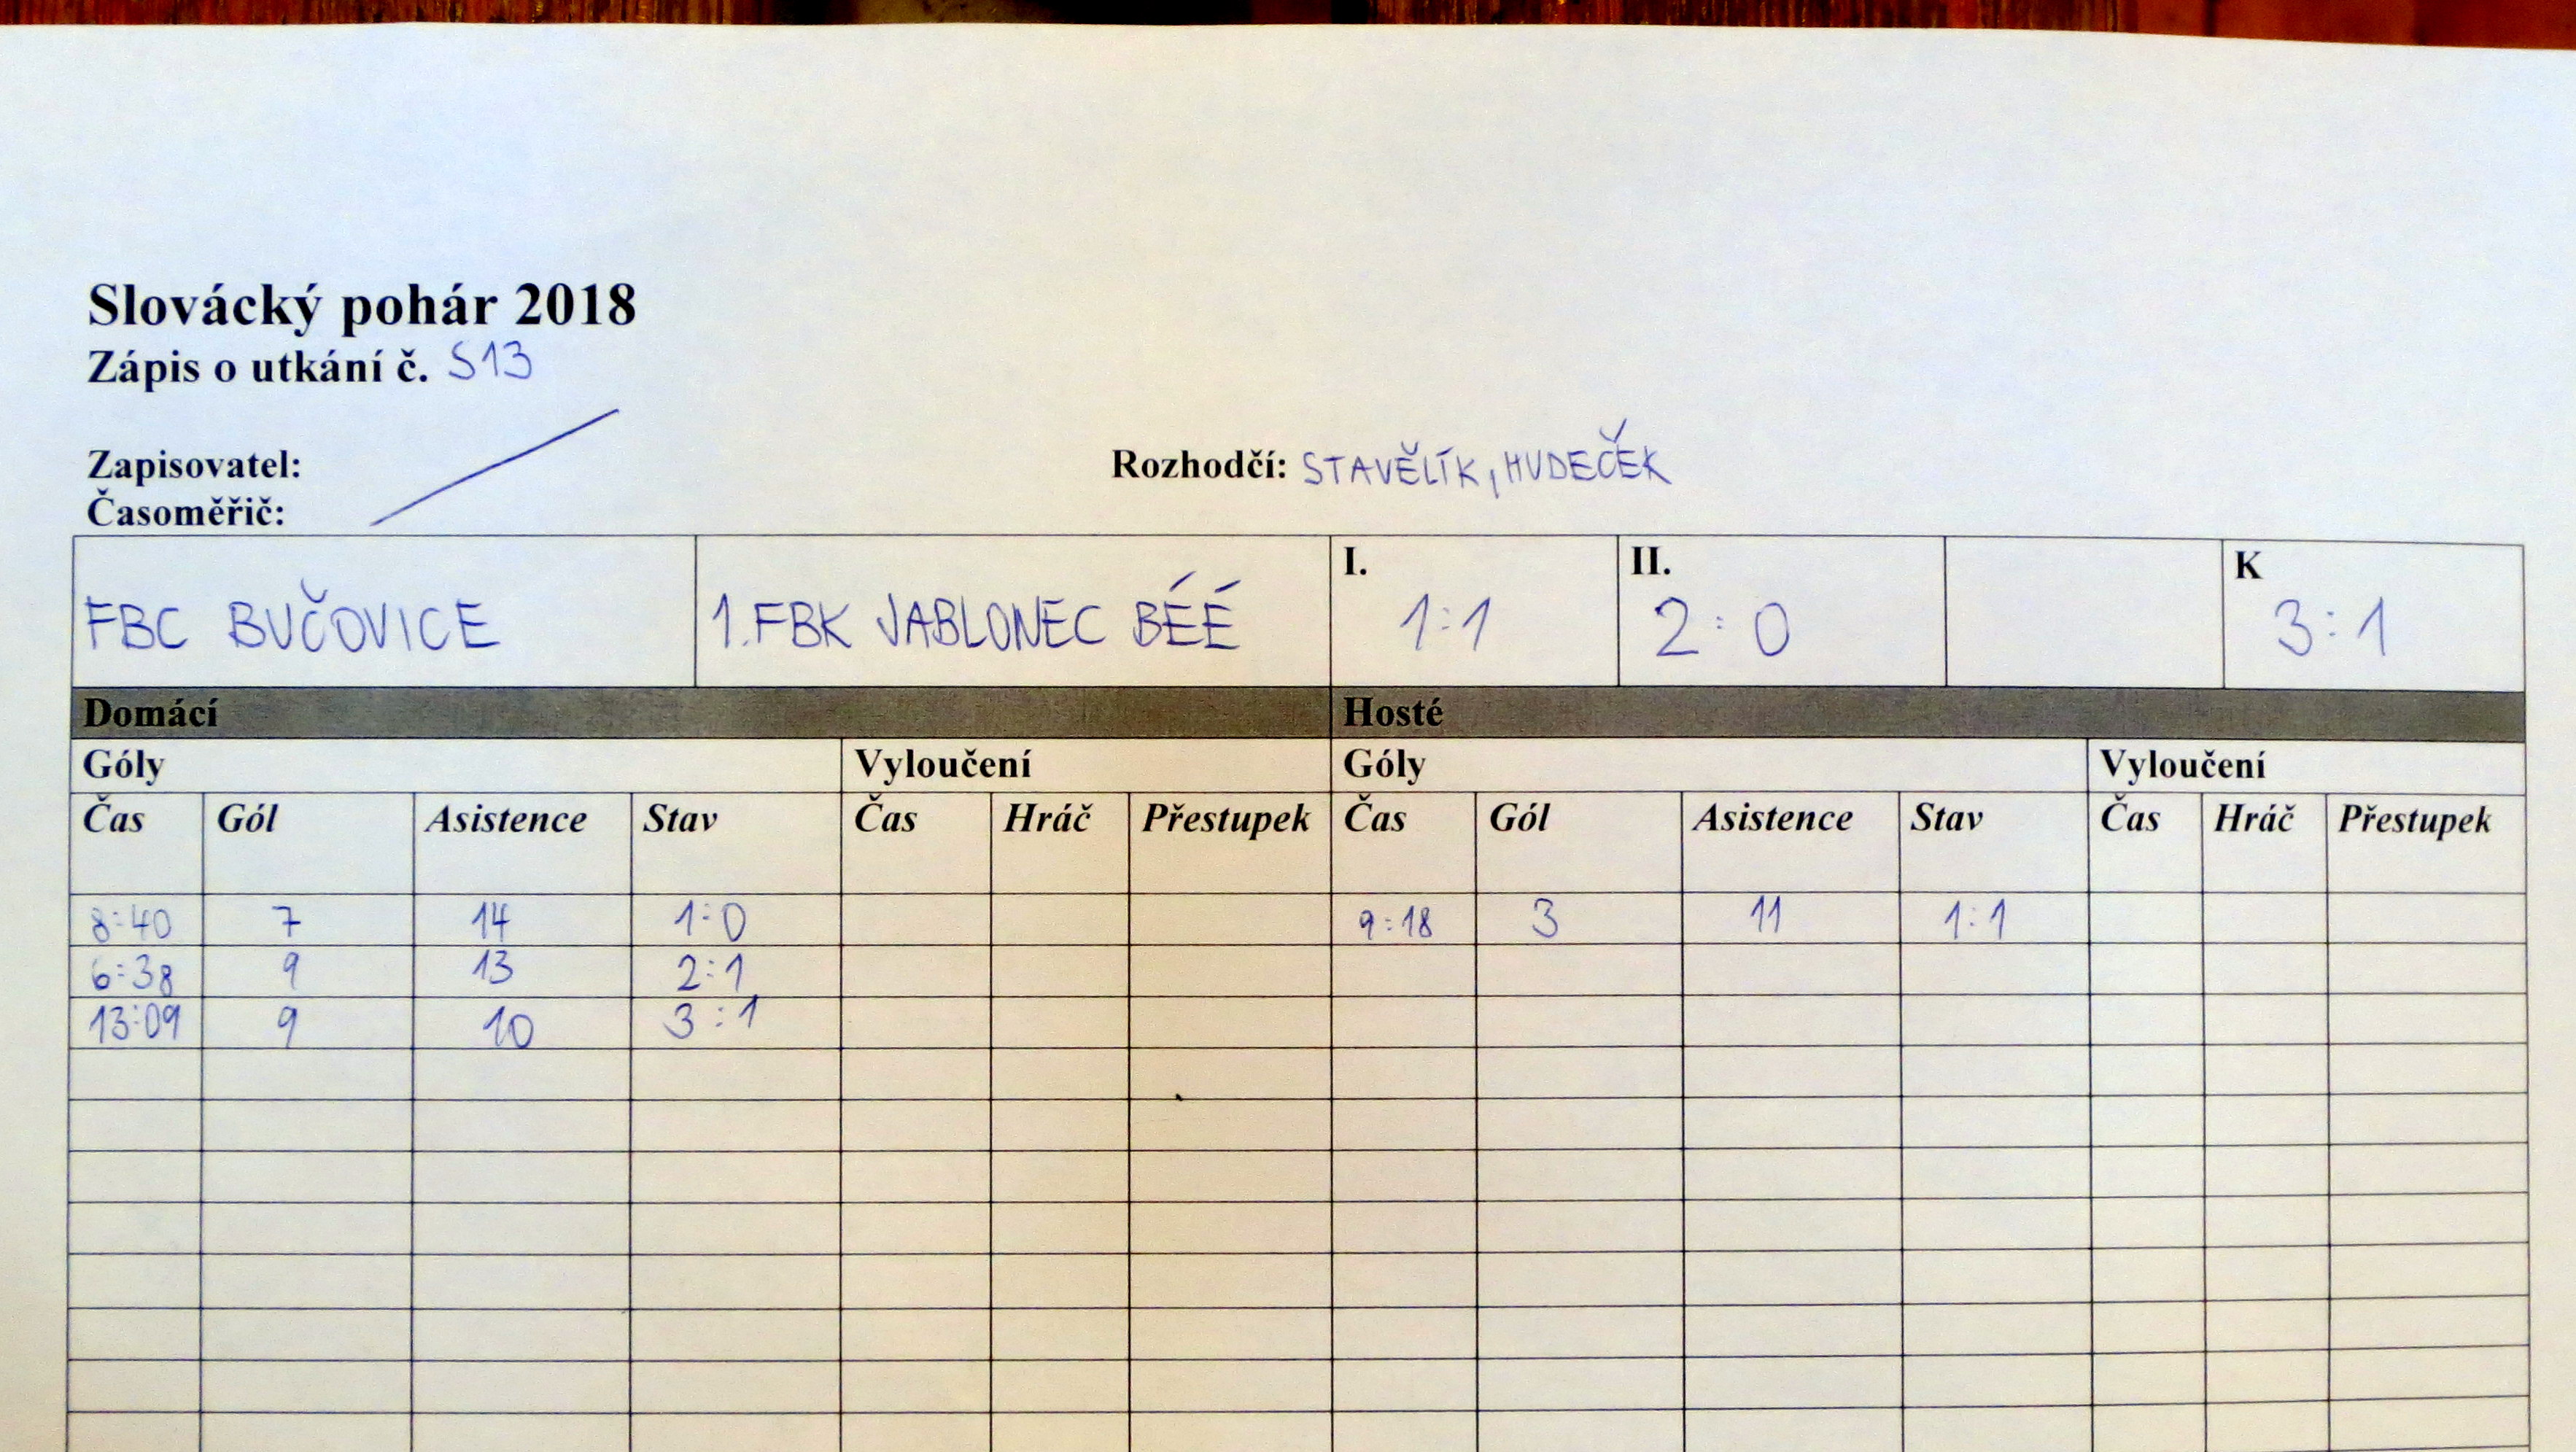 Slovácký pohár 2018
Zápis o utkání č. S13
Zapisovatel:
Rozhodčí: STAVĚLÍK, HUDEČEK
Časoměřič:
FBC BUČOVICE 1. FBK JABLONEC BÉÉ I. 1:1 II. 2:0 K 3:1
Domácí Hosté
Góly Vyloučení Góly Vyloučení
Čas Gól Asistence Stav Čas Hráč Přestupek Čas Gól Asistence Stav Čas Hráč Přestupek
8:40 7 14 1:0 9:18 3 11 1:1
6:38 9 13 2:1
13:09 9 10 3:1